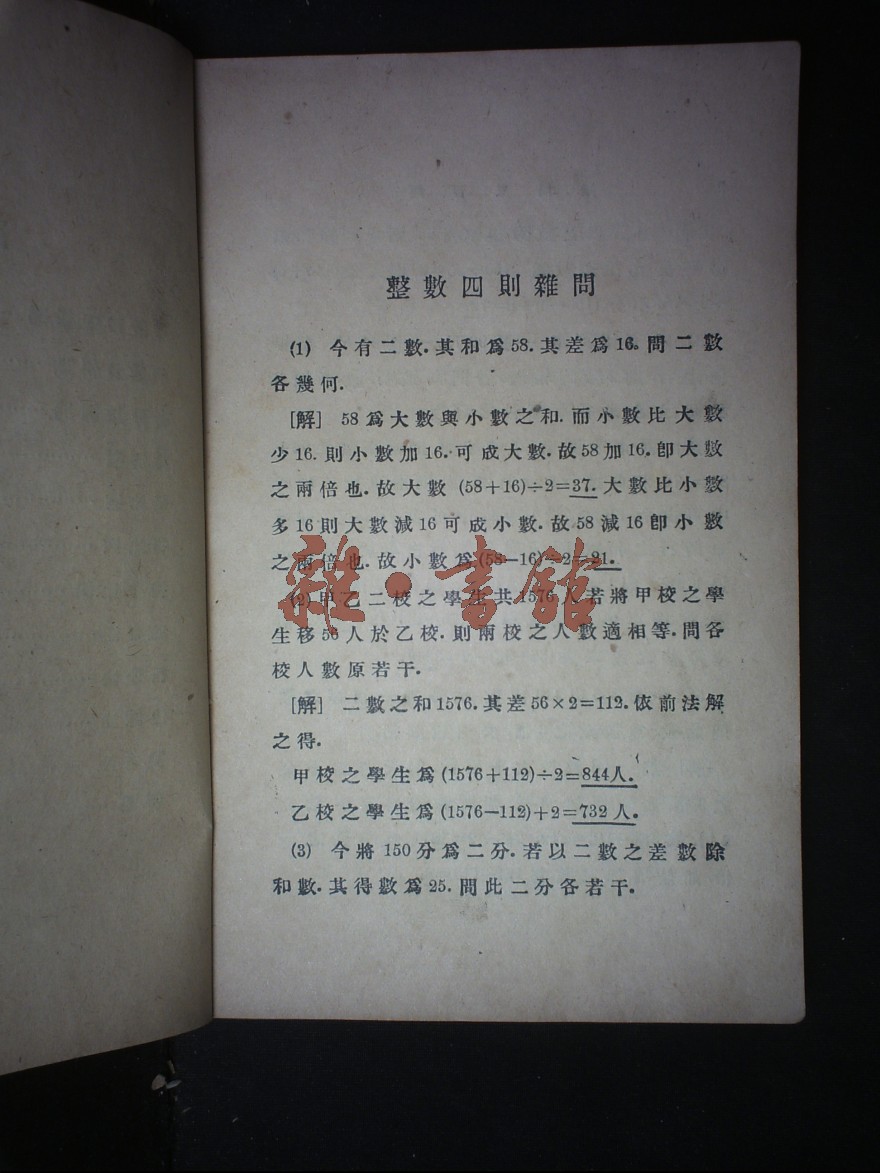 整數四則雜問
(1) 今有二數.其和爲58.其差爲16。問二數
各幾何.
[解] 58爲大數與小數之和.而小數比大數
少16.則小數加16.可成大數.故58加16.卽大數
之兩倍也.故大數 (58+16)÷2=37.大數比小數
多16則大數減16可成小數.故58減16卽小數
之兩倍也.故小數爲(58-16)÷2=21.
雜·書館
(2)甲乙二校之學生共1576人若將甲校之學
生移56人於乙校.則兩校之人數適相等.問各
校人數原若干.
[解] 二數之和1576.其差56×2=112.依前法解
之得.
甲校之學生爲(1576+112)÷2=844人.
乙校之學生爲(1576-112)+2=732人.
(3) 今將150分爲二分.若以二數之差數除
和數.其得數爲25.問此二分各若干.